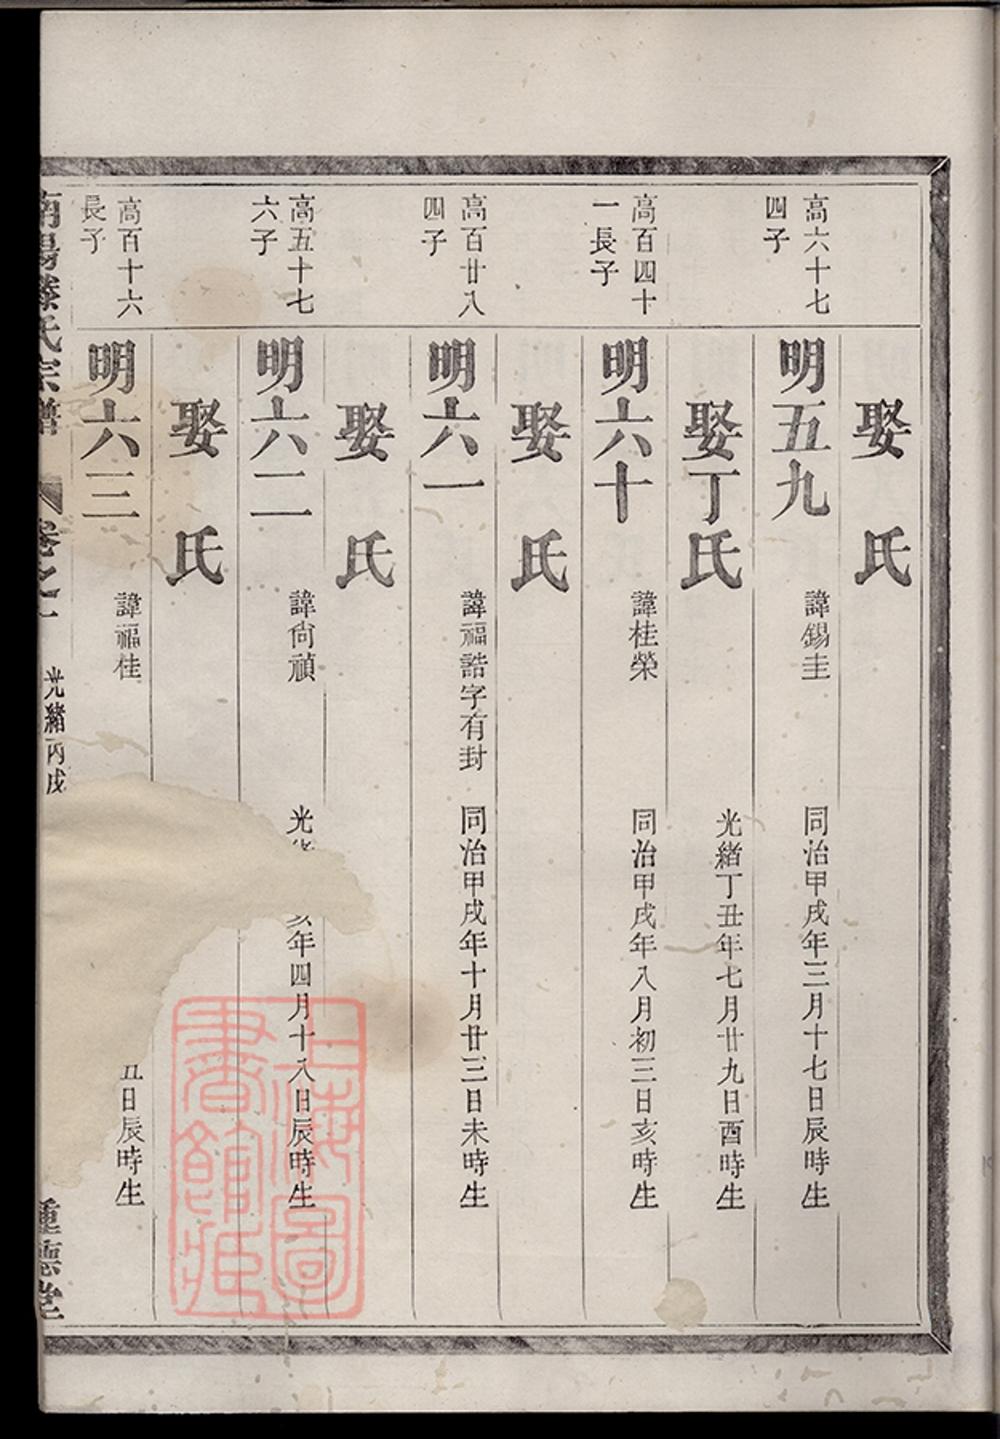 娶 氏
高六十七
四子
明五九 諱錫圭 同治甲戌年三月十七日辰時生
娶丁氏 光緒丁丑年七月廿九日酉時生
高百四十
一長子
明六十 諱桂榮 同治甲戌年八月初三日亥時生
娶 氏
高百廿八
四子
明六一 諱福誥字有封 同治甲戌年十月廿三日未時生
娶 氏
高五十七
六子
明六二 諱尙禎 光 亥年四月十八日辰時生
娶 氏
高百十六
長子
明六三 諱福桂 五日辰時生
南陽滕氏宗譜 卷之 光緒丙戌 種德堂
上海圖
書館藏